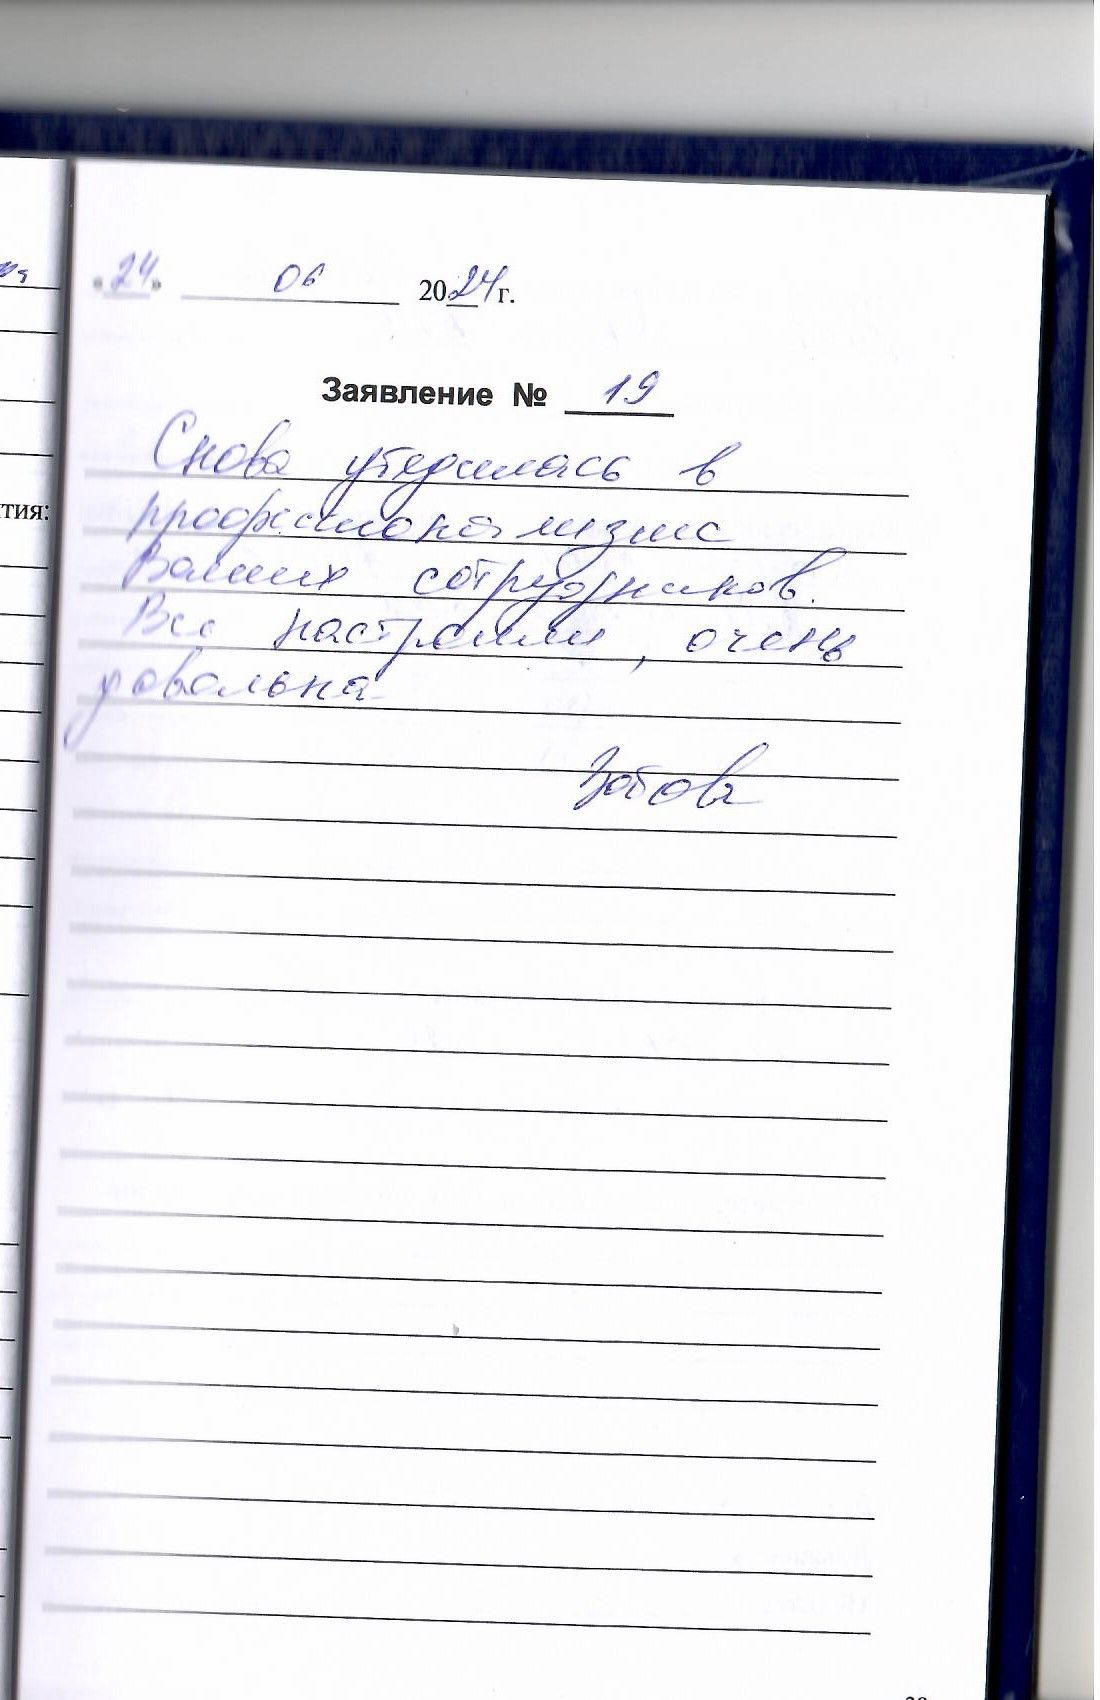 «24» 06 2024 г.
Заявление № 19
Снова убедилась в
профессионализме
Ваших сотрудников.
Все настроили, очень
довольна
Зотова
тия: